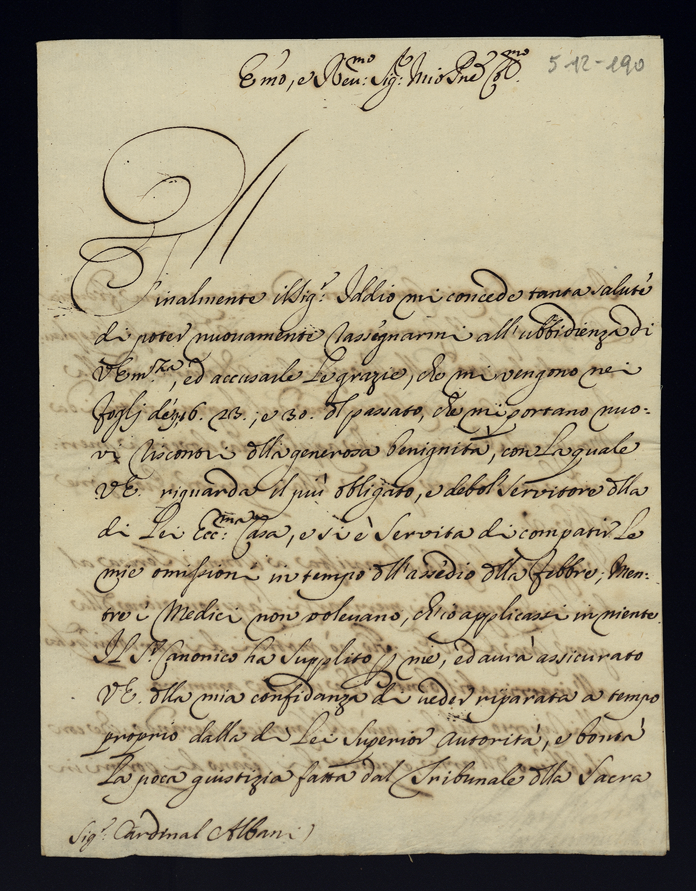 Emo, e Reu:mo Sig:r Mio Pne Co:mo
5-12-190
Finalmente il Sig.r Iddio mi concede tanta salute
di poter nuovamente rassegnarmi all'ubbidienza di
VEm.za, ed accusarle le grazie, che mi vengono nei
foglj de' 16. 23., e 30. del passato, che mi portano nuo-
vi riscontri dlla generosa benignità, con la quale
VE riguarda il più obligato, e debol servitore dlla
di Lei Ecc:ma Casa, e si è servita di compatir le
mie omissioni in tempo dll'assedio dlla febbre, men-
tre i Medici non volevano, ch'io applicassi in niente.
Il S.r Canonico ha supplito p me, ed aurà assicurato
VE. dlla mia confidanza di veder riparata a tempo
proprio dalla di Lei superior autorità, e bontà
la poca giustizia fatta dal Tribunale dlla Sacra
Sig.r Cardinal Albani